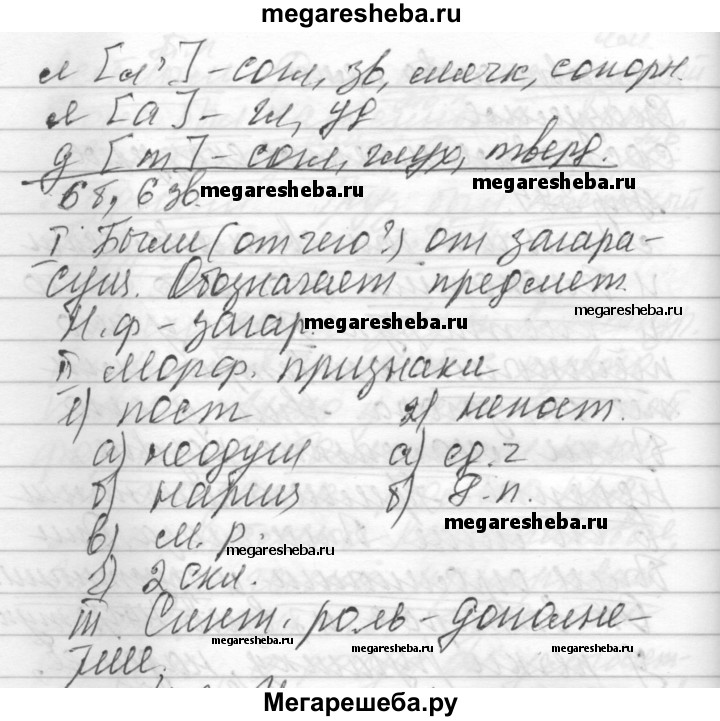 megaresheba.ru
л [л'] - согл, зв, мягк, сонорн.
я [а] - гл, уд
д [т] - согл, глух, тверд.
6 б, 6 зв. megaresheba.ru megaresheba.ru
I Были (от чего?) от загара-
сущ. Обозначает предмет.
Н.ф - загар. megaresheba.ru megaresheba.ru
II Морф. признаки
1) пост 2) непост.
а) неодуш а) ед. ч
б) нариц б) Р.п.
megaresheba.ru
в) м. р. megaresheba.ru
г) 2 скл.
III. Синт. роль - дополне-
megaresheba.ru megaresheba.ru
ние,
Мегарешеба.ру